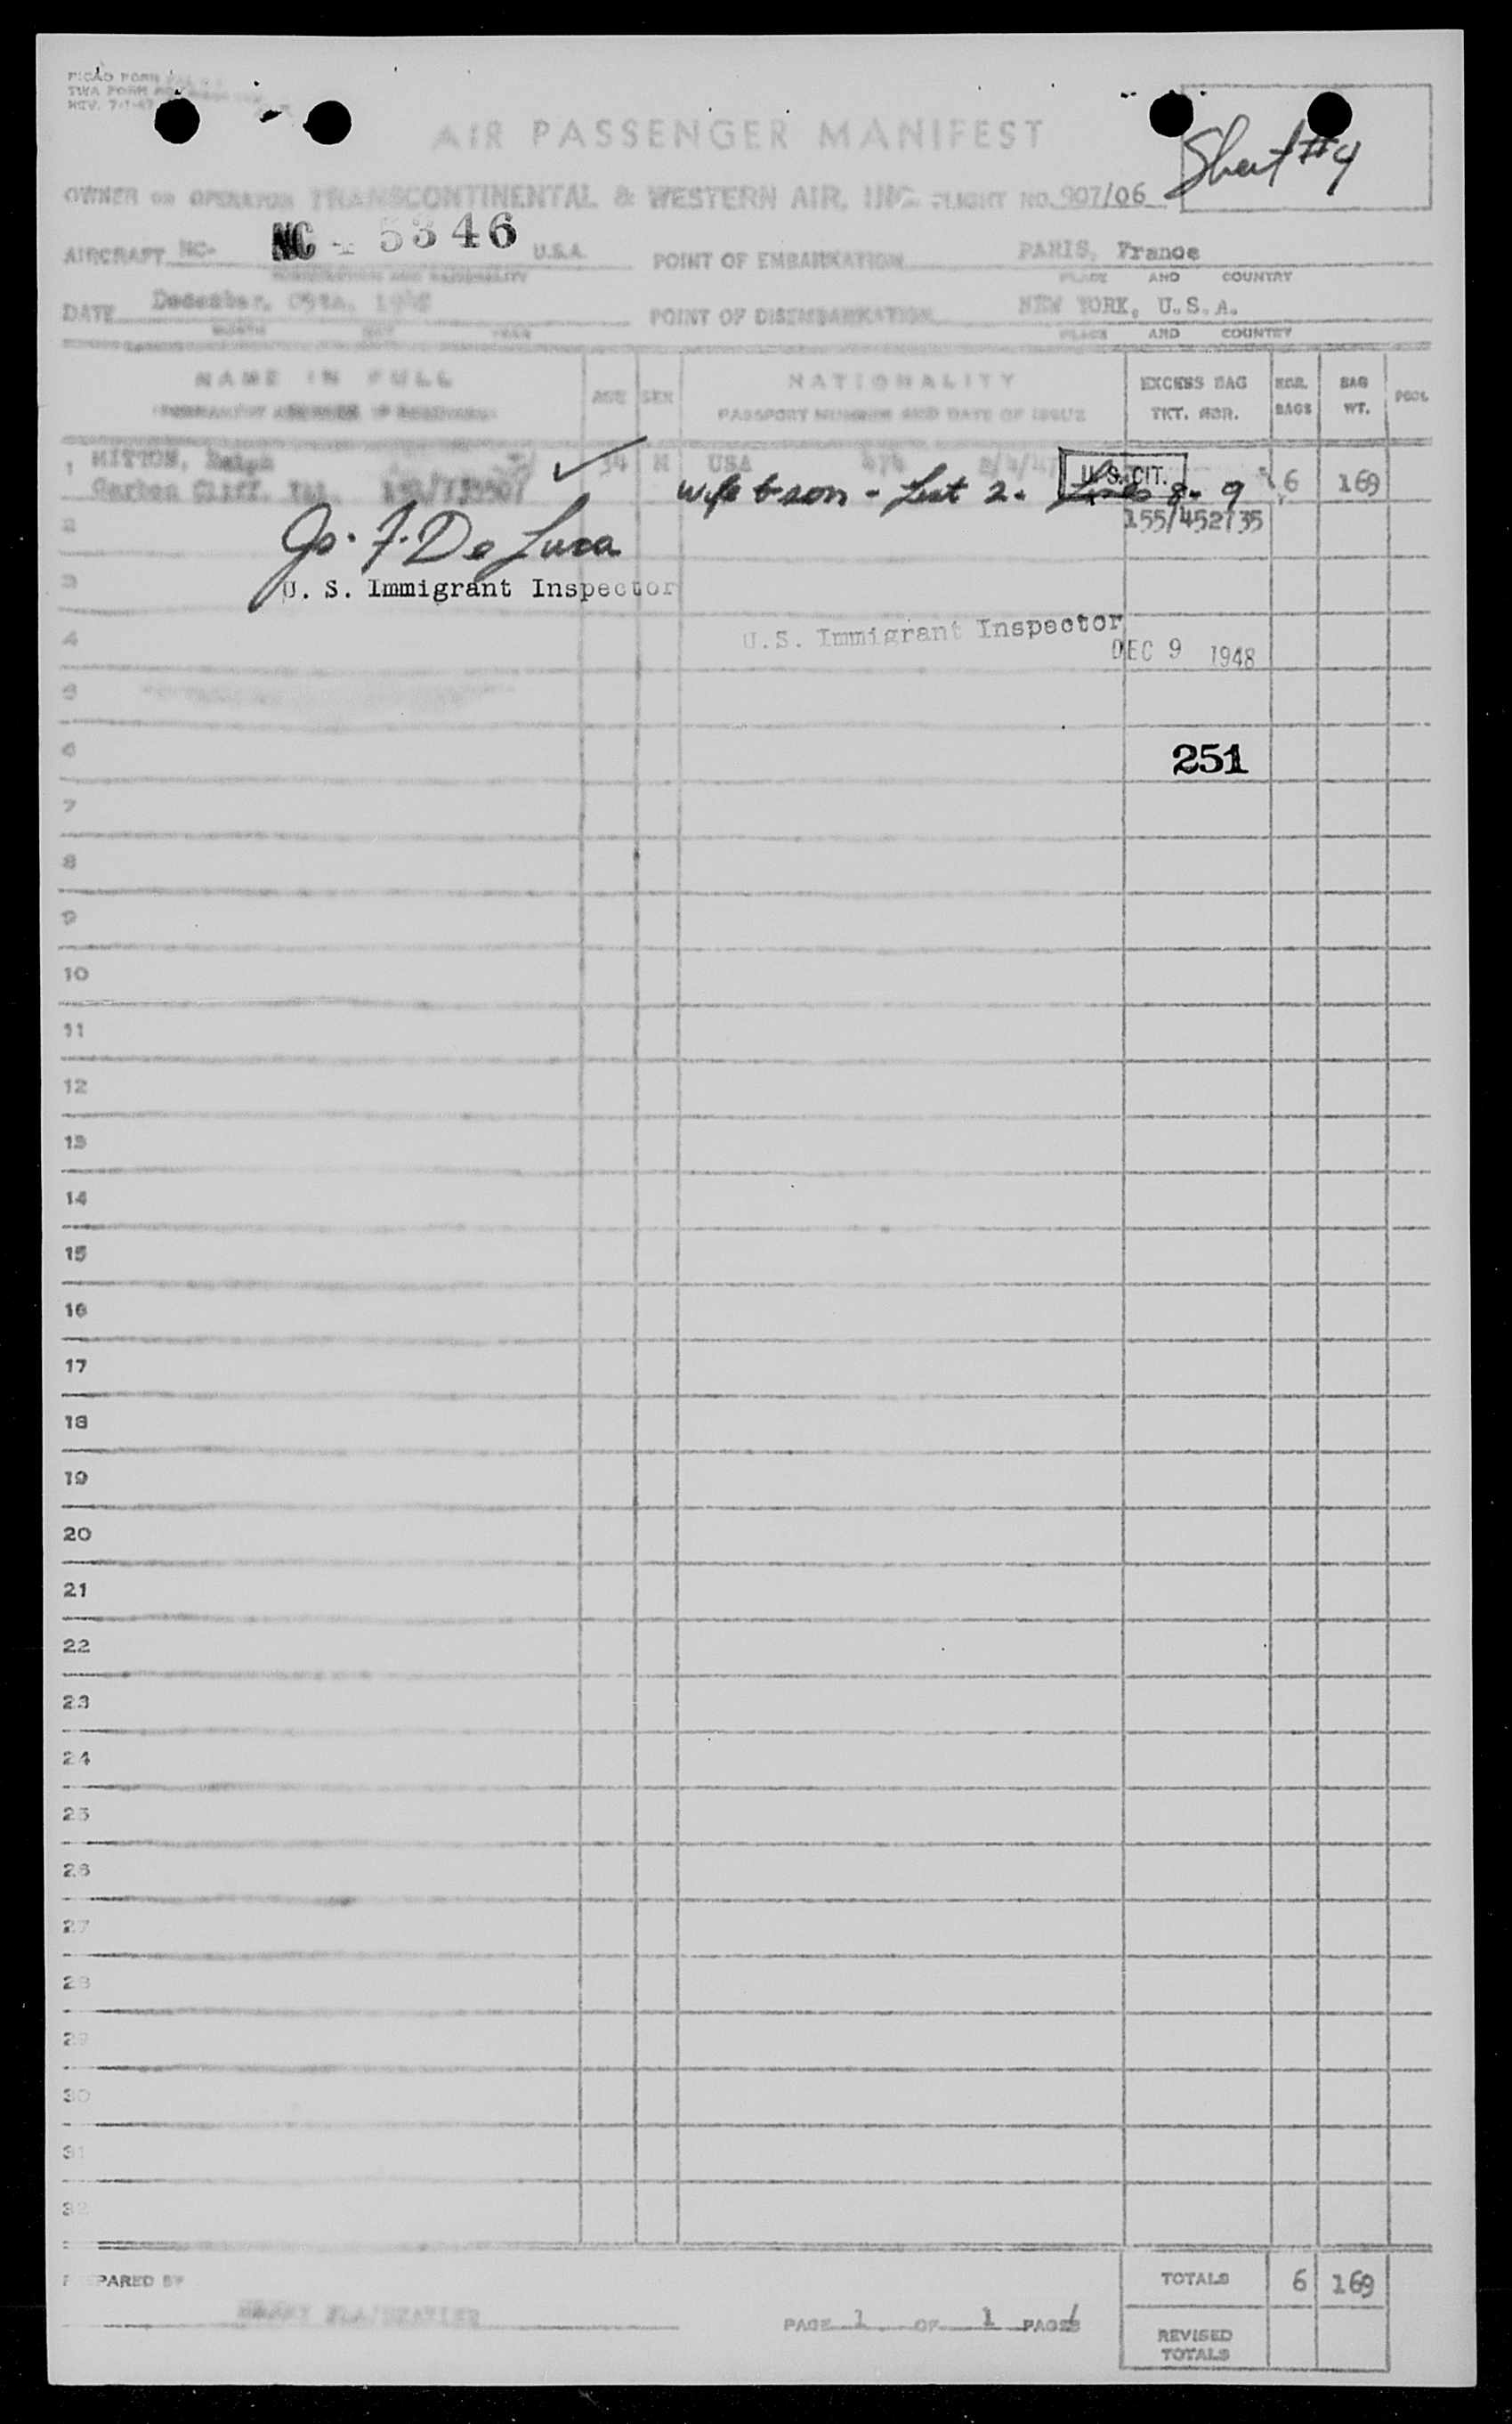 PICAO FORM
TWA FORM
REV. 7-1-47
AIR PASSENGER MANIFEST
Sheet #4
OWNER OR OPERATOR TRANSCONTINENTAL & WESTERN AIR, INC. FLIGHT NO. 907/06
AIRCRAFT NC- NC 5346 U.S.A. POINT OF EMBARKATION PARIS, France
REGISTRATION AND NATIONALITY PLACE AND COUNTRY
DATE December, 09th, 1948 POINT OF DISEMBARKATION NEW YORK, U.S.A.
MONTH DAY YEAR PLACE AND COUNTRY
NAME IN FULL AGE SEX NATIONALITY EXCESS BAG NBR. BAG POOL
PASSPORT NUMBER AND DATE OF ISSUE TKT. NBR. BAGS WT.
1 Ralph 34 M USA U.S. CIT. 6 169
wife & son - List 2. Lines 8-9
2 155/452735
Jo. F. De Luca
3 U. S. Immigrant Inspector
4 U.S. Immigrant Inspector
DEC 9 1948
5
6 251
7
8
9
10
11
12
13
14
15
16
17
18
19
20
21
22
23
24
25
26
27
28
29
30
31
32
PREPARED BY TOTALS 6 169
PAGE 1 OF 1 PAGES
REVISED
TOTALS